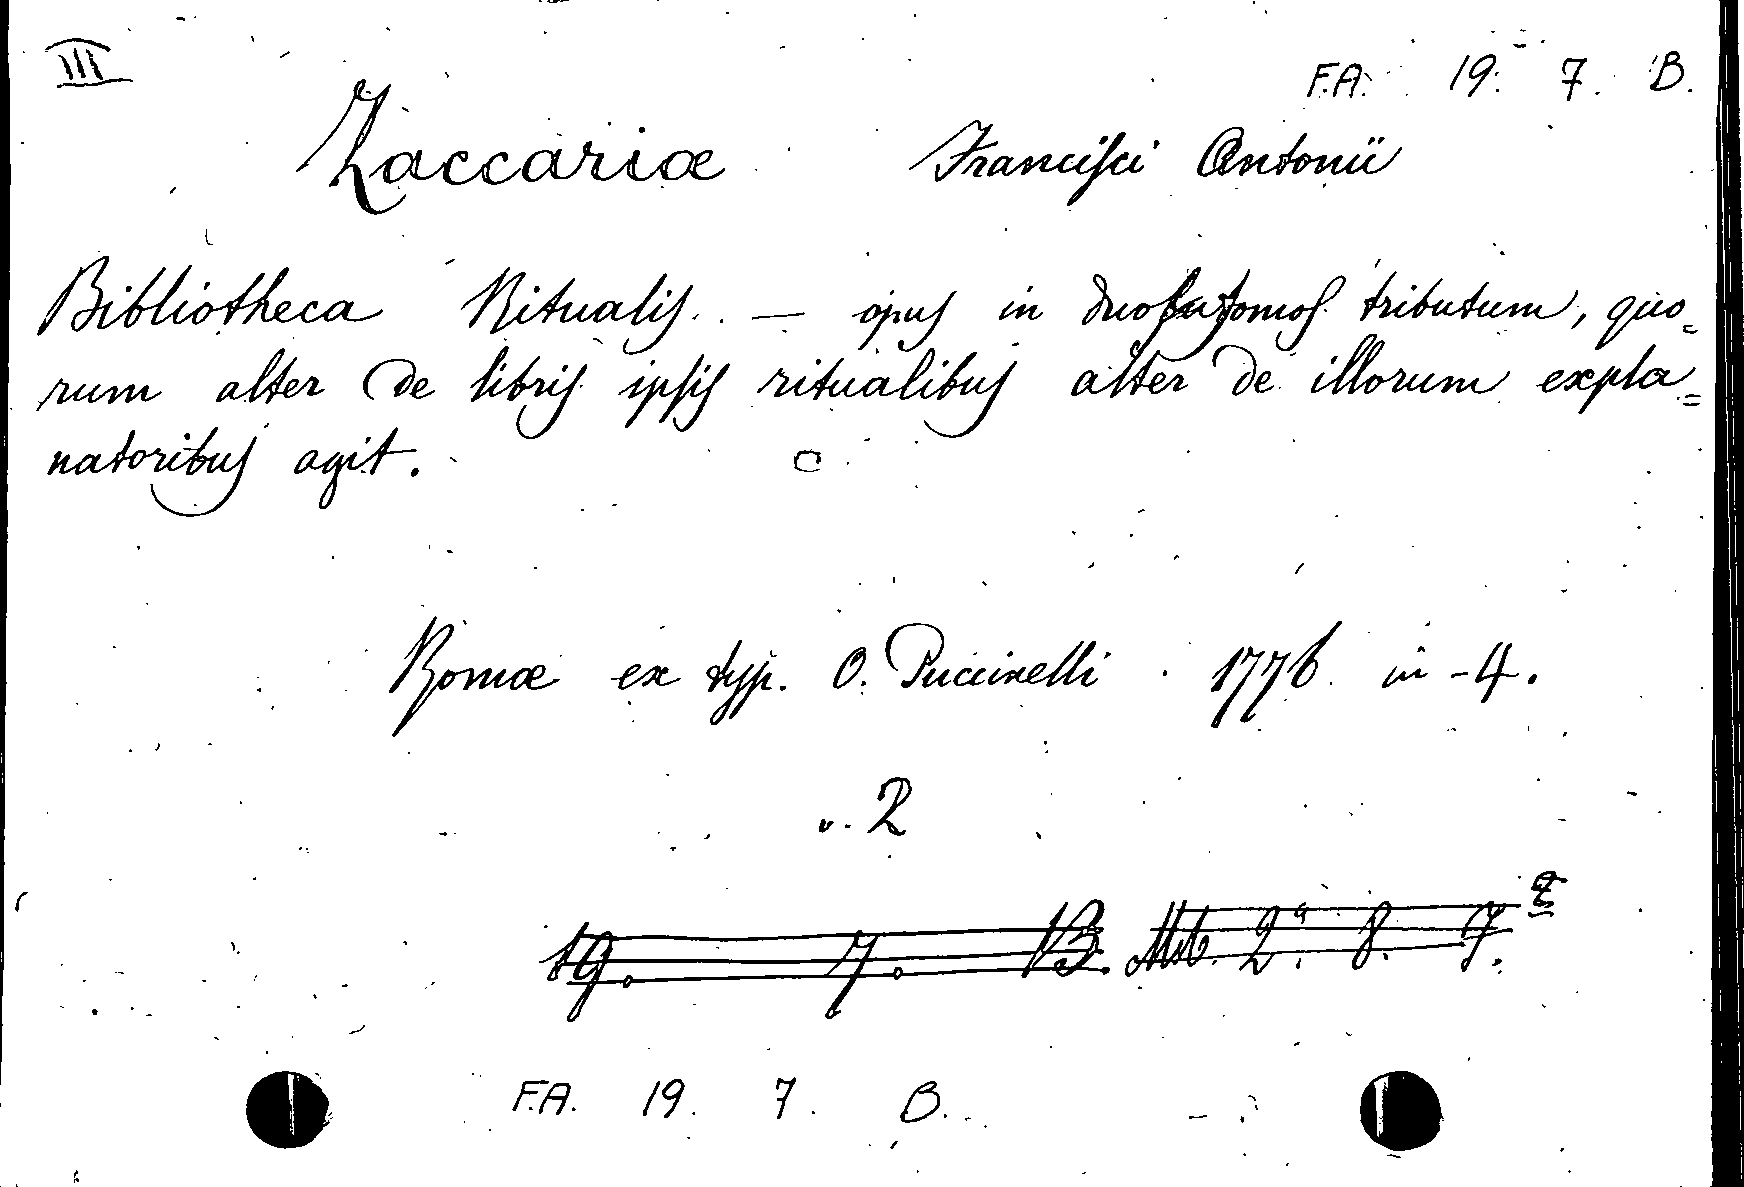 III
F.A. 19. 7. B.
Zaccariæ Francisci Antonii
Bibliotheca Ritualis. — opus in duos tomos tributum, quo=
rum alter de libris ipsis ritualibus alter de illorum expla=
natoribus agit.
Romæ ex typ. O. Puccinelli 1776 in-4.
v. 2
19. 7. B. Mb. 2ª. 8. 7.
F.A. 19. 7. B.